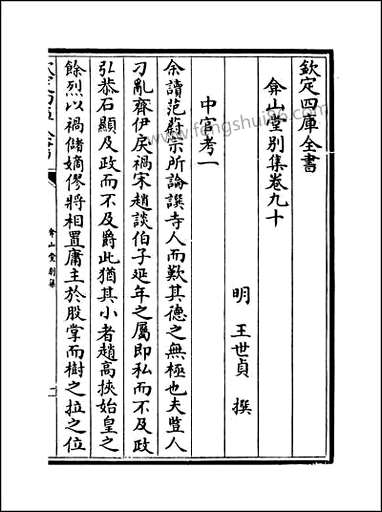 欽定四庫全書
弇山堂別集卷九十
明 王世貞 撰
中官考一
余讀范蔚宗所論譔寺人而歎其德之無極也夫豎人
刁亂齊伊戾禍宋趙談伯子延年之屬即私而不及政
弘恭石顯及政而不及爵此猶其小者趙高挾始皇之
餘烈以禍儲嫡僇將相置庸主於股掌而樹之拉之位
弇山堂別集
www.fangshuibo.com